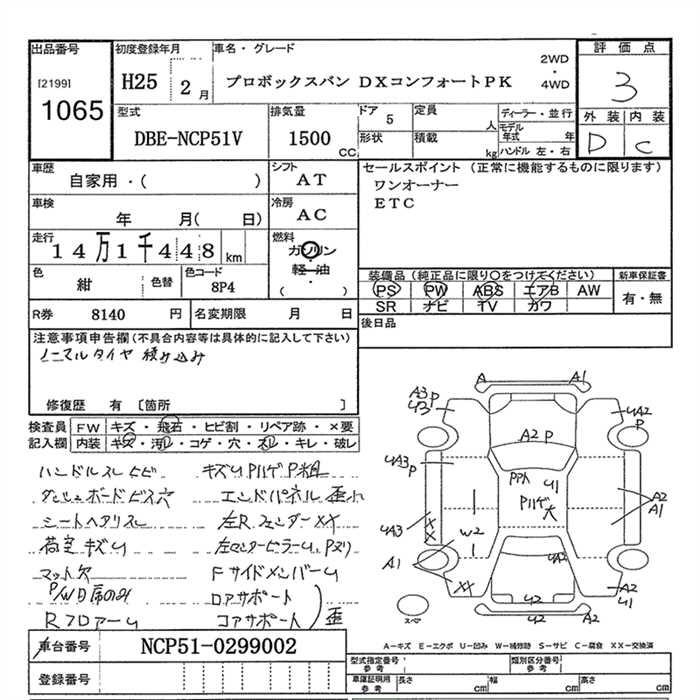 出品番号
[2199]
1065
初度登録年月
H25 2 月
車名・グレード
プロボックスバン DXコンフォートPK
2WD
・
4WD
評価点
3
外装 内装
D C
型式
DBE-NCP51V
排気量
1500 CC
ドア
5
形状
定員
人
積載
kg
ディーラー・並行
モデル年式 年
ハンドル 左・右
車歴
自家用・( )
シフト
AT
セールスポイント (正常に機能するものに限ります)
ワンオーナー
ETC
車検
年 月( 日)
冷房
AC
走行
14万1千448 km
燃料
ガソリン
・
軽油
・
( )
色
紺
色替
色コード
8P4
装備品 (純正品に限り○をつけてください)
PS PW ABS エアB AW
SR ナビ TV カワ
新車保証書
有・無
R券 8140 円
名変期限 月 日
後日品
注意事項申告欄(不具合内容等は具体的に記入して下さい)
ノーマルタイヤ積み込み
修復歴 有 [箇所 ]
検査員記入欄
FW キズ・飛石・ヒビ割・リペア跡・×要
内装 キズ・汚レ・コゲ・穴・スレ・キレ・破レ
ハンドルスレ ヒビ
ダッシュボードビス穴
シートヘタリスレ
荷室キズU
マット欠
P/W D席のみ
RフロアーU
キズUPハゲP粗
エンドパネル歪小
左Rフェンダー××
左センターピラーU、Pズリ
FサイドメンバーU
ロアサポート
コアサポート
歪
A
A1
A3 P
U3
UA2
P
A2 P
UA3
P
PP大
U1
Pハゲ
大
A2
A1
××
UA3
W2
A1
××
UA2
A2
U1
U2
U2
スペア
A－キズ E－エクボ U－凹み W－補修跡 S－サビ C－腐食 XX－交換済
車台番号 NCP51-0299002
登録番号
型式指定番号
参考
類別区分番号
参考
車庫証明用
参考
長さ cm 幅 cm 高さ cm